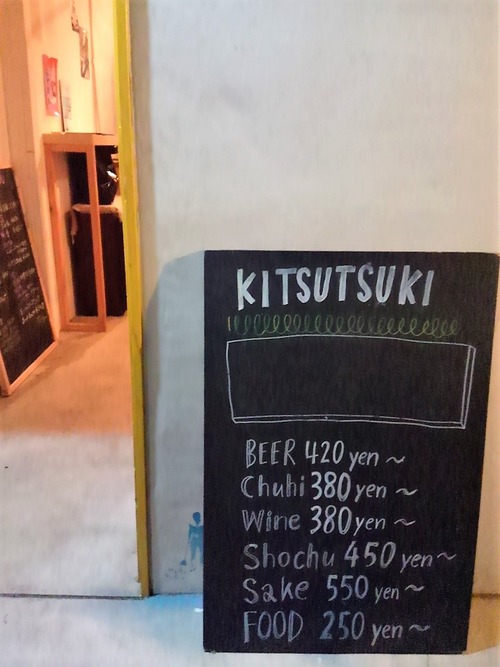 KITSUTSUKI
BEER 420 yen ~
Chuhi 380 yen ~
Wine 380 yen ~
Shochu 450 yen ~
Sake 550 yen ~
FOOD 250 yen ~